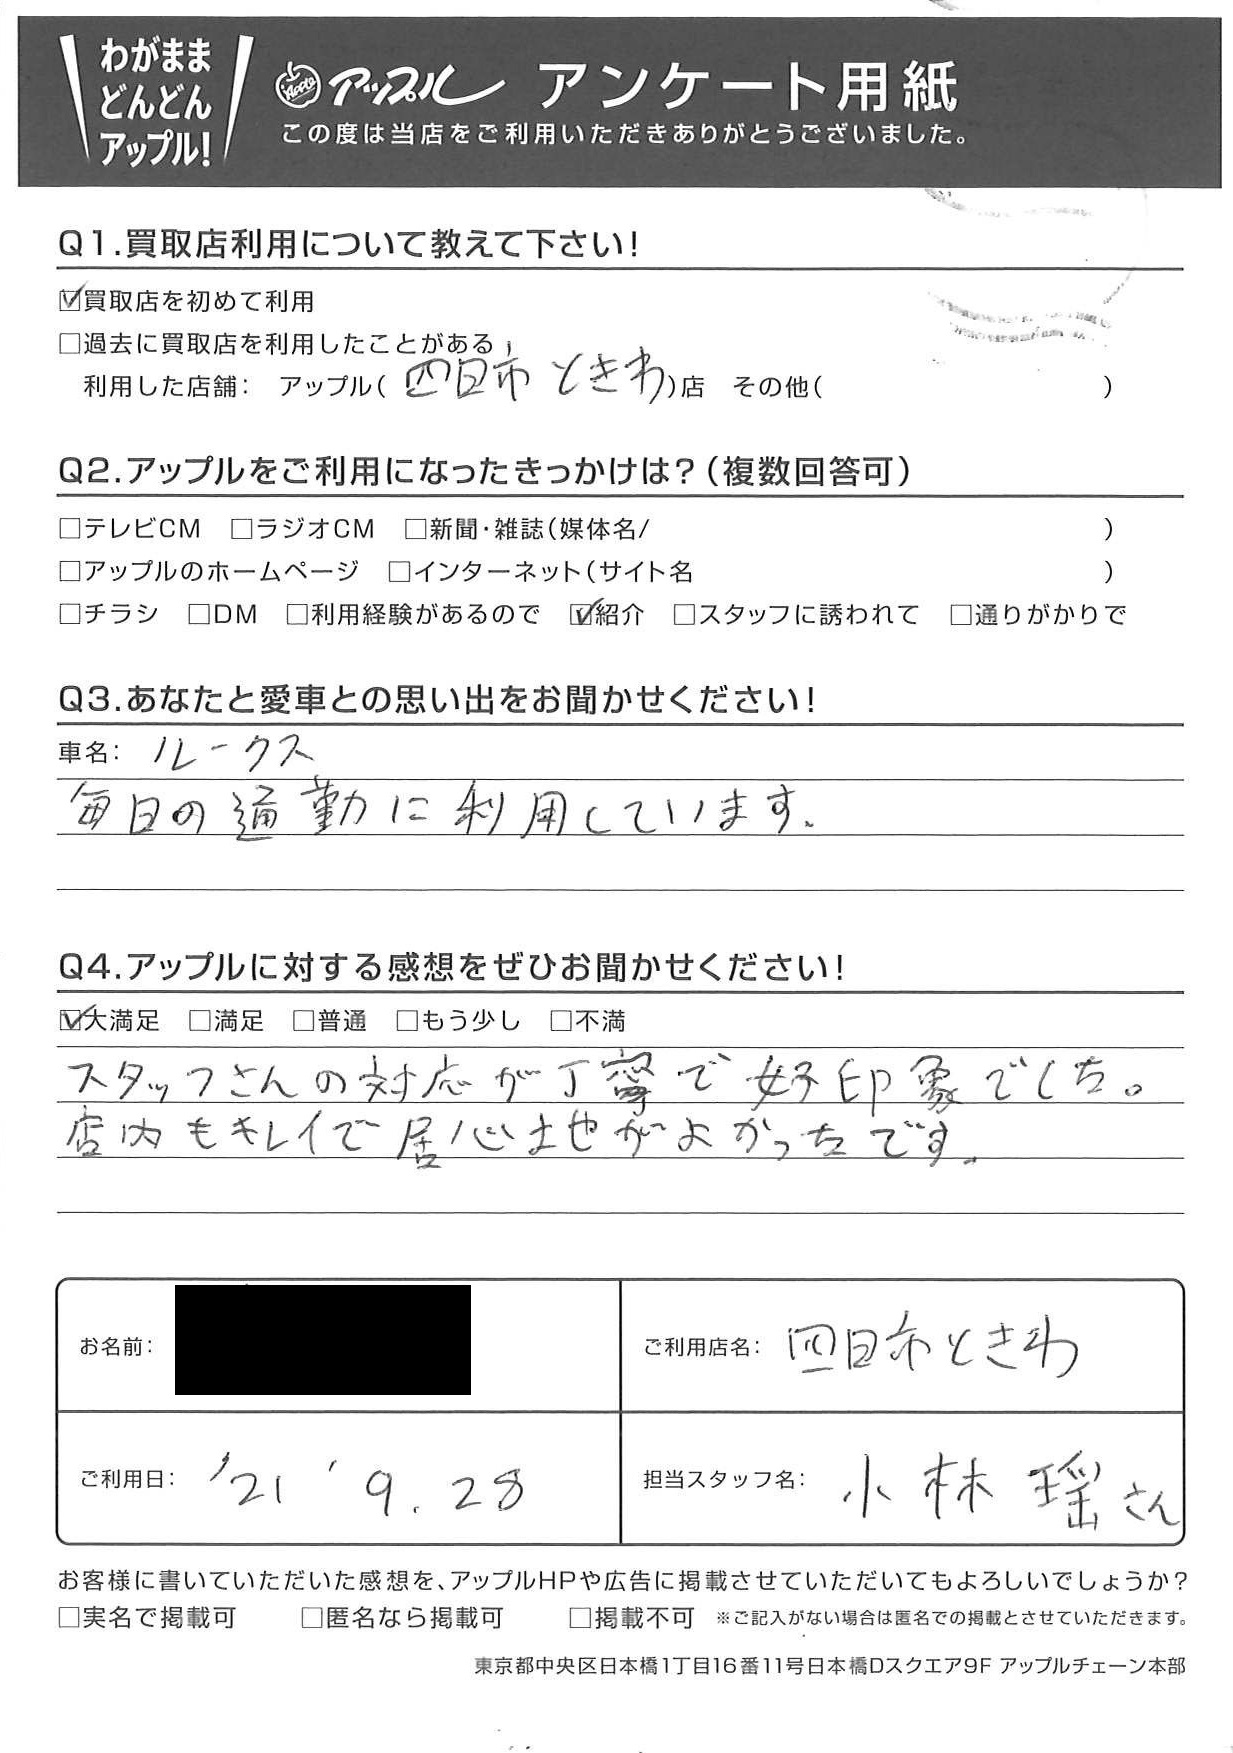 わがまま
どんどん
アップル!
Apple アップル アンケート用紙
この度は当店をご利用いただきありがとうございました。
Q1.買取店利用について教えて下さい!
☑買取店を初めて利用
□過去に買取店を利用したことがある
利用した店舗: アップル(四日市ときわ)店 その他( )
Q2.アップルをご利用になったきっかけは?(複数回答可)
□テレビCM □ラジオCM □新聞・雑誌(媒体名/ )
□アップルのホームページ □インターネット(サイト名 )
□チラシ □DM □利用経験があるので ☑紹介 □スタッフに誘われて □通りがかりで
Q3.あなたと愛車との思い出をお聞かせください!
車名: ルークス
毎日の通勤に利用しています。
Q4.アップルに対する感想をぜひお聞かせください!
☑大満足 □満足 □普通 □もう少し □不満
スタッフさんの対応が丁寧で好印象でした。
店内もキレイで居心地がよかったです。
お名前:
ご利用店名: 四日市ときわ
ご利用日: '21 '9.28
担当スタッフ名: 小林 瑶さん
お客様に書いていただいた感想を、アップルHPや広告に掲載させていただいてもよろしいでしょうか?
□実名で掲載可 □匿名なら掲載可 □掲載不可 ※ご記入がない場合は匿名での掲載とさせていただきます。
東京都中央区日本橋1丁目16番11号日本橋Dスクエア9F アップルチェーン本部